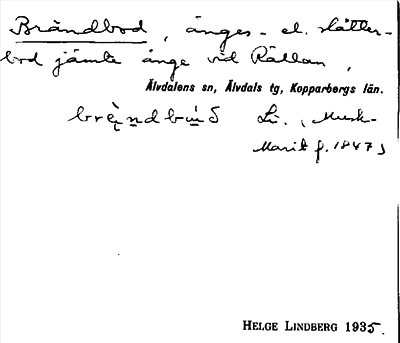 Brändbod, änges- el. slåtter-
bod jämte änge vid Rällan,
Älvdalens sn, Älvdals tg, Kopparbergs län.
Li., Musk-
Marit f. 1847
HELGE LINDBERG 1935.